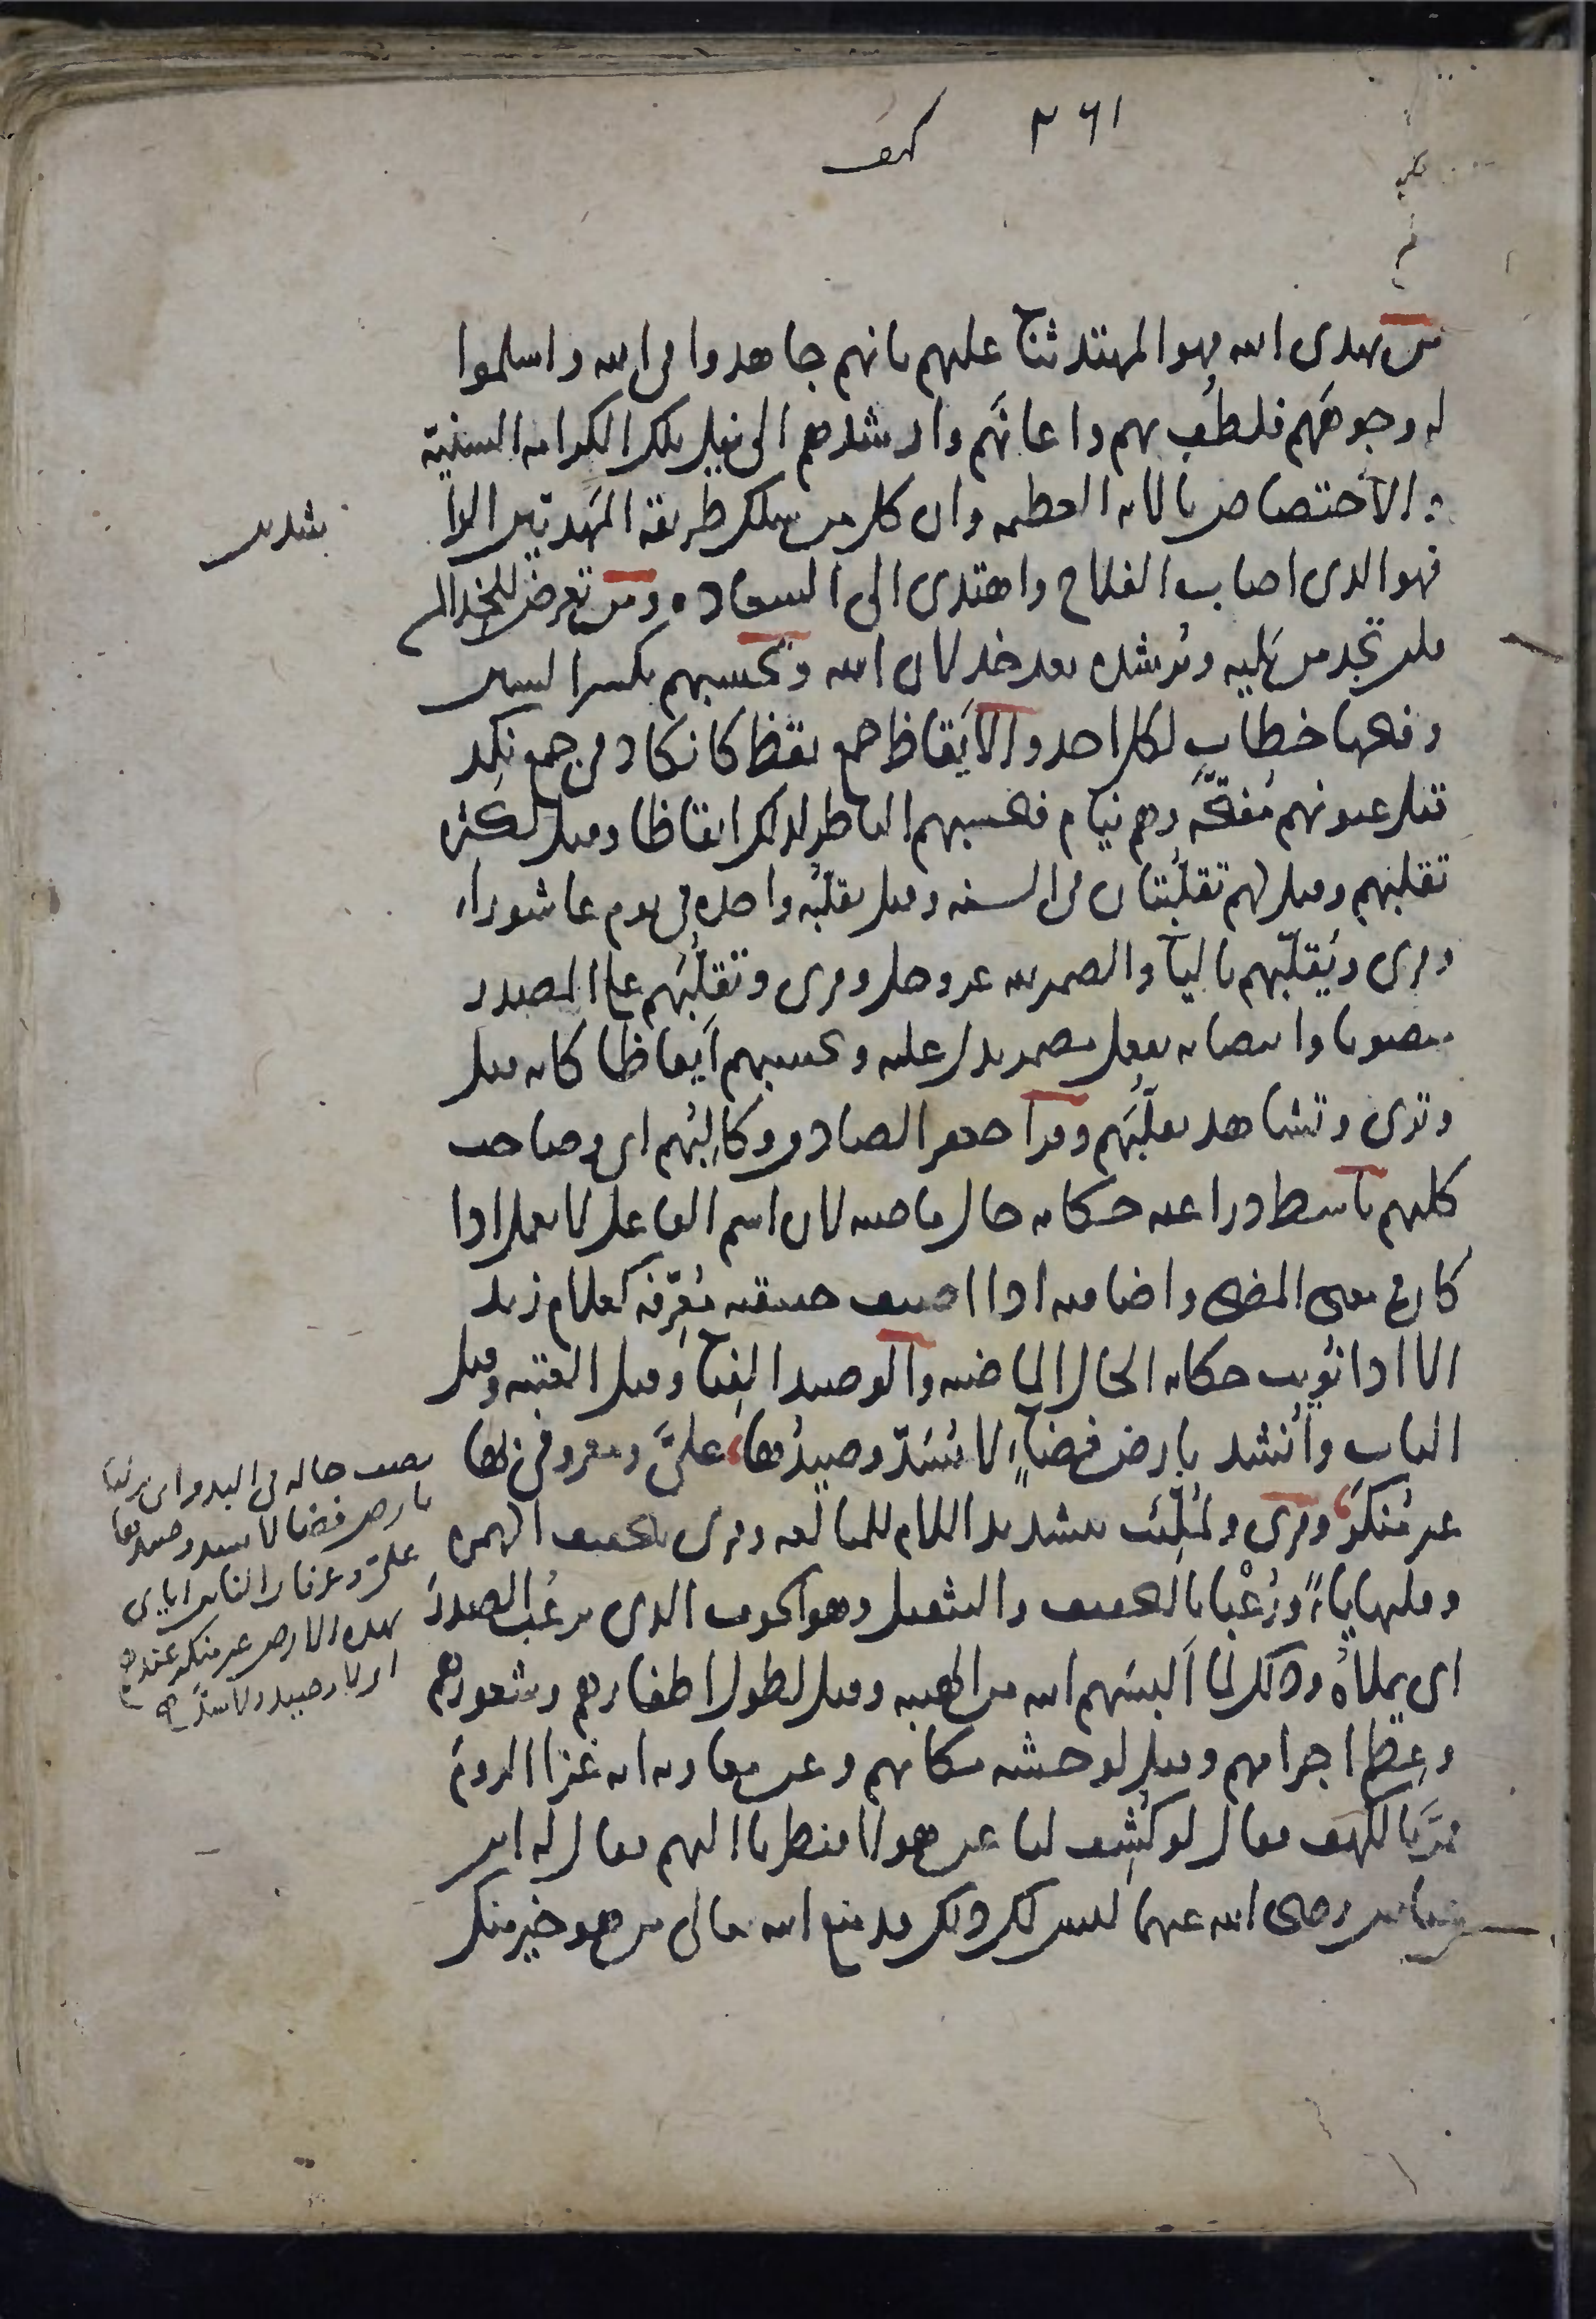 ٢٦١ كهف
من يهدى الله فهو المهتد ثناء عليهم بانهم جاهدوا فى الله واسلموا
له وجوههم فلطف بهم واعانهم وارشدهم الى نيل تلك الكرامة السنية
والاختصاص بالاية العظيمة وان كل من سلك طريقة المهتدين الرا
شدين
فهو الذى اصاب الفلاح واهتدى الى السعادة ومن تعرض للخذلان
فلن تجد من يليه ويرشده بعد خذلان الله وتحسبهم بكسر السين
وفتحها خطاب لكل احد والايقاظ جمع يقظ كانكاد فى جمع نكد
قيل عيونهم مفتحة وهم نيام فيحسبهم الناظر لذلك ايقاظا وقيل لكثرة
تقلبهم وقيل لهم تقلبتان فى السنة وقيل تقلبة واحدة فى يوم عاشوراء
وقرى ويقلبهم بالياء والضمير لله عز وجل وقرى وتقلبهم على المصدر
منصوبا وانتصابه بفعل مضمر يدل عليه وتحسبهم ايقاظا كانه قيل
وترى وتشاهد تقلبهم وقرا جعفر الصادق وكالبهم اى وصاحب
كلبهم باسط ذراعيه حكاية حال ماضية لان اسم الفاعل لا يعمل اذا
كان فى معنى المضى واضافته اذا اضيف حقيقية معرفة كغلام زيد
الا اذا نويت حكاية الحال الماضية والوصيد الفناء وقيل العتبة وقيل
الباب وانشد بارض فضاء لا يسد وصيدها علىّ ومعروفى بها
غير منكر وقرى ولملئت بتشديد اللام للمبالغة وقرى بتخفيف الهمزة
وقلبها ياء ورعبا بالتخفيف والتثقيل وهو الخوف الذى يرعب الصدر
اى يملاه وذلك لما البسهم الله من الهيبة وقيل لطول اظفارهم وشعورهم
وعظم اجرامهم وقيل لوحشة مكانهم وعن معاوية انه غزا الروم
فمر بالكهف فقال لو كشف لنا عن هولا فنظرنا اليهم فقال له ابن
عباس رضى الله عنهما ليس لك ذلك قد منع الله تعالى من هو خير منك
يصف حاله فى البدو اى نزلنا
بارض فضا لا يسد وصيدها
على وعرفان الناس اياى
بهذه الارض غير منكر عندهم
اى لا وصيد ولا سد